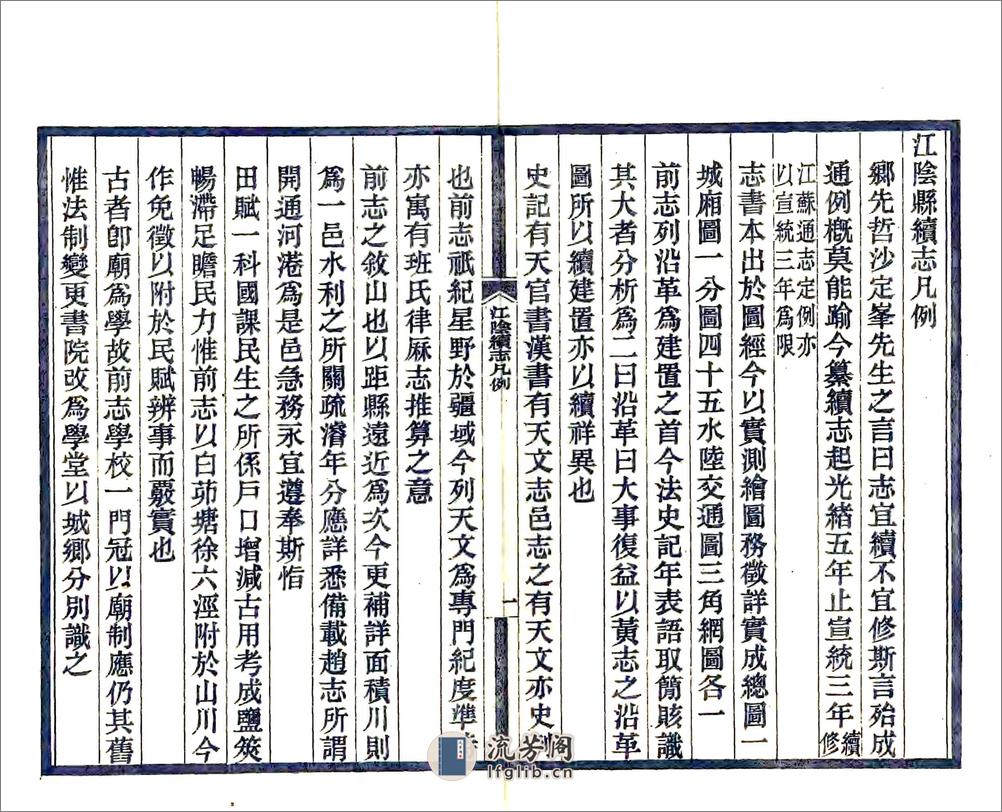 江陰縣續志凡例
鄉先哲沙定峯先生之言曰志宜續不宜修斯言殆成
通例概莫能踰今纂續志起光緒五年止宣統三年續修
江蘇通志定例亦
以宣統三年爲限
志書本出於圖經今以實測繪圖務徵詳實成總圖一
城廂圖一分圖四十五水陸交通圖三角網圖各一
前志列沿革爲建置之首今法史記年表語取簡賅識
其大者分析爲二曰沿革曰大事復益以黃志之沿革
圖所以續建置亦以續祥異也
史記有天官書漢書有天文志邑志之有天文亦史
江陰續志凡例
一
也前志祇紀星野於疆域今列天文爲專門紀度準
亦寓有班氏律厤志推算之意
前志之敘山也以距縣遠近爲次今更補詳面積川則
爲一邑水利之所關疏濬年分應詳悉備載趙志所謂
開通河港爲是邑急務永宜遵奉斯恉
田賦一科國課民生之所係戶口增減古用考成鹽筴
暢滯足瞻民力惟前志以白茆塘徐六涇附於山川今
作免徵以附於民賦辨事而覈實也
古者卽廟爲學故前志學校一門冠以廟制應仍其舊
惟法制變更書院改爲學堂以城鄉分別識之
流芳阁
lfglib.cn